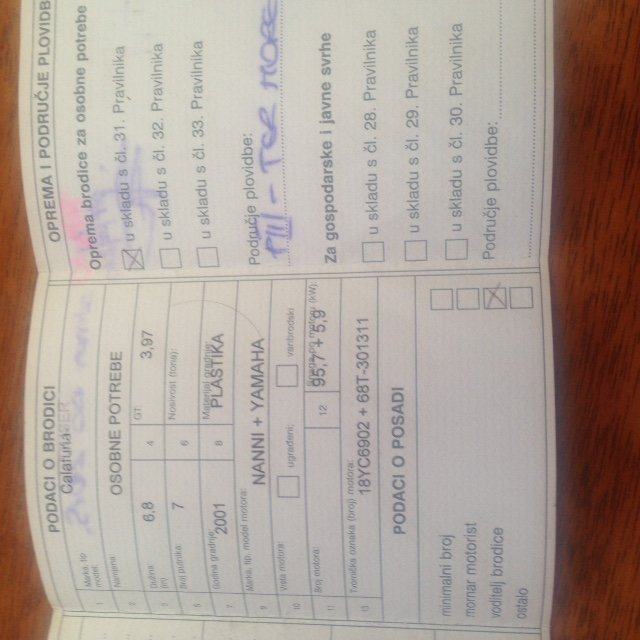 PODACI O BRODICI
1 Marka, tip model:
2 Namjena OSOBNE POTREBE
3 Dužina (m) 6,8 4 GT: 3,97
5 Broj putnika 7 6 Nosivost (tona):
7 Godina gradnje 2001 8 Materijal gradnje: PLASTIKA
9 Marka, tip, model motora: NANNI + YAMAHA
10 Vrsta motora: ugrađeni; vanbrodski
11 Broj motora: 12 95,7 + 5,9
13 Tvornička oznaka (broj) motora: 18YC6902 + 68T-301311
PODACI O POSADI
minimalni broj
mornar motorist
voditelj brodice
ostalo
OPREMA I PODRUČJE PLOVIDB
Oprema brodice za osobne potrebe
u skladu s čl. 31. Pravilnika
u skladu s čl. 32. Pravilnika
u skladu s čl. 33. Pravilnika
Područje plovidbe:
III - TER MORE
Za gospodarske i javne svrhe
u skladu s čl. 28. Pravilnika
u skladu s čl. 29. Pravilnika
u skladu s čl. 30. Pravilnika
Područje plovidbe: